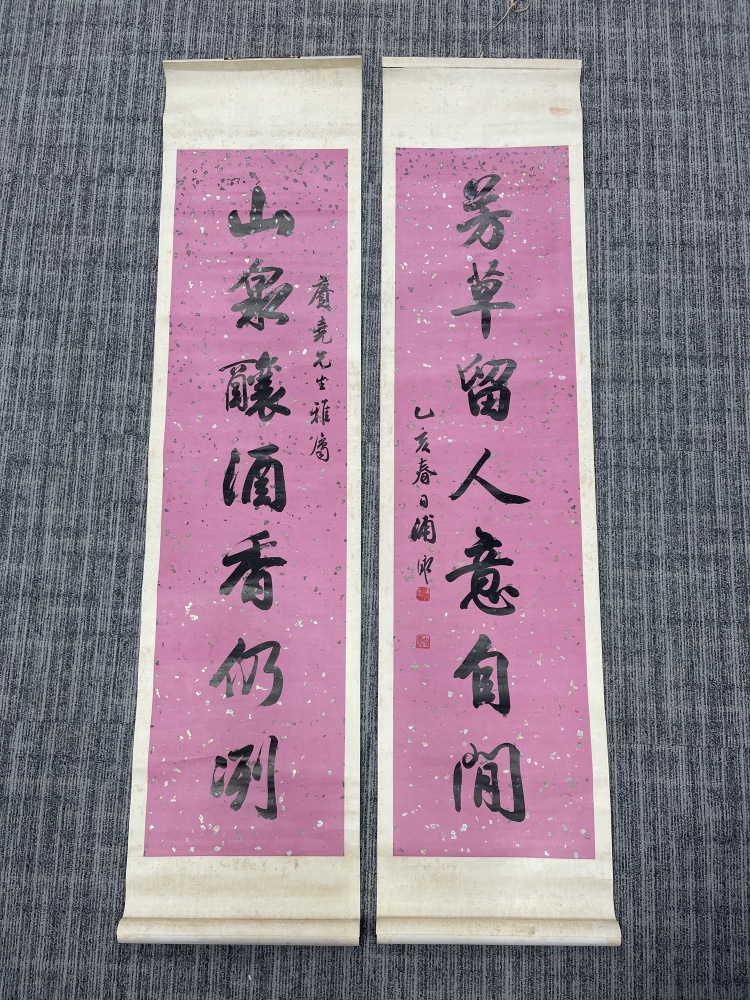 賡堯先生雅屬
山泉釀酒香仍洌
芳草留人意自閒
乙亥春日溥